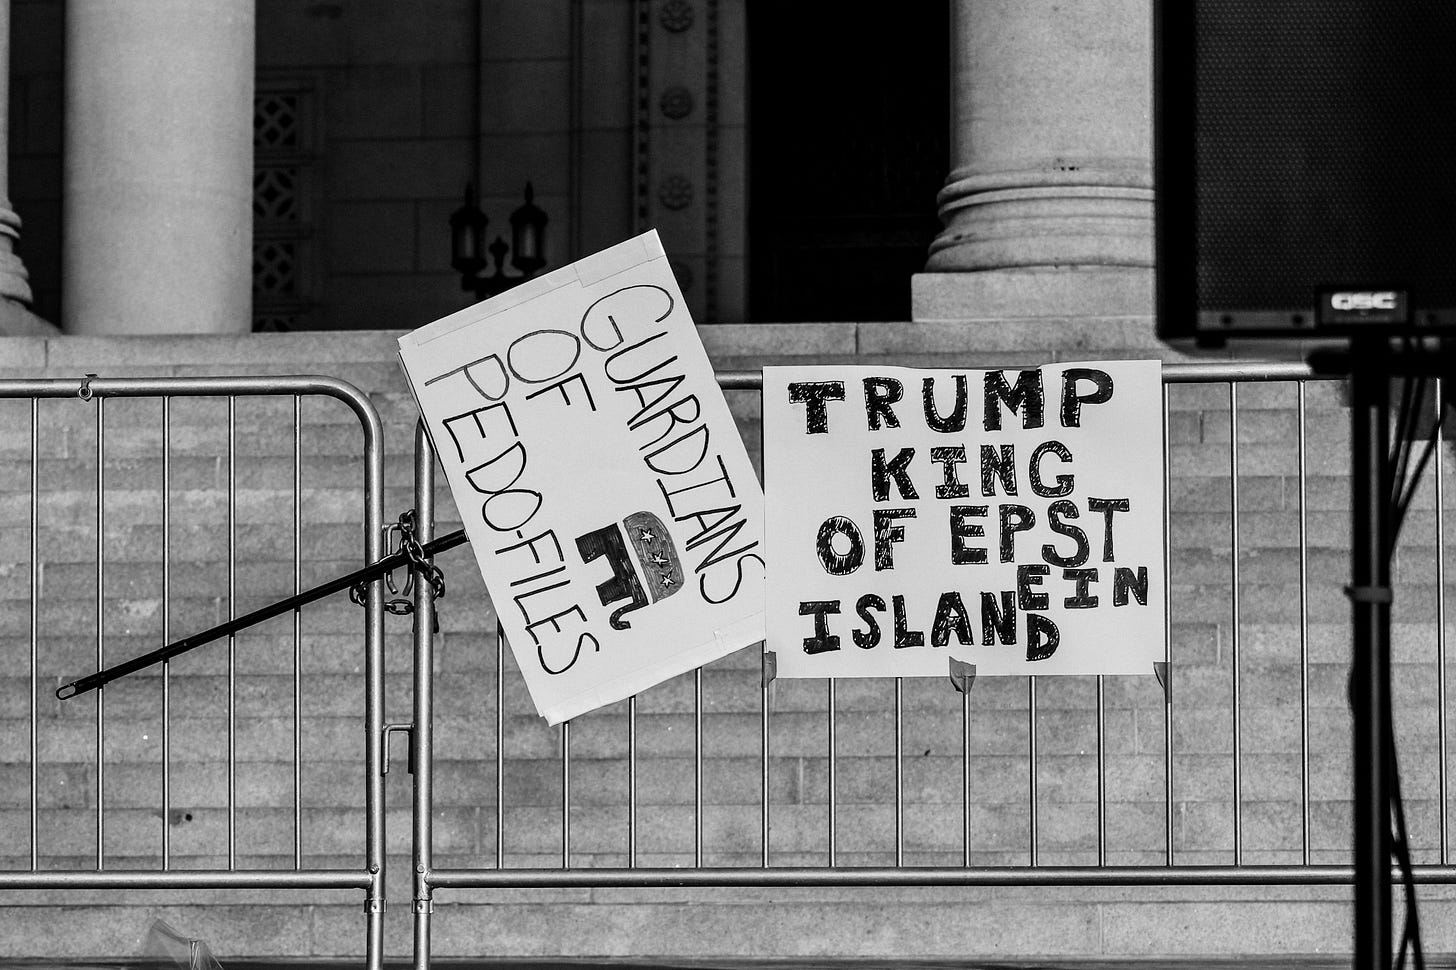 GUARDIANS
OF
PEDO-FILES
TRUMP
KING
OF EPST
EIN
ISLAND
QSC